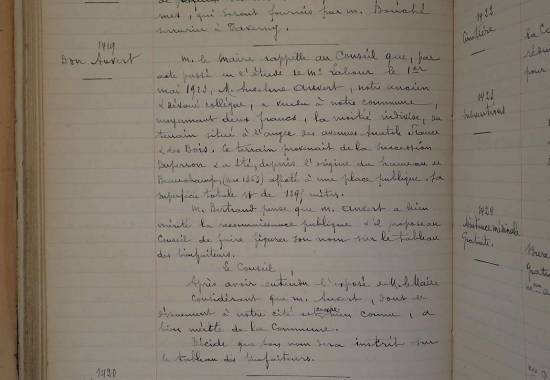 mes, qui seront fournis par M. Bouché
serrurier à Taverny.
1419
Don Auvert
M. le Maire rappelle au Conseil que, par
acte passé en l'Etude de Me Lahour le 1er
mai 1923, M. Auvert, notre ancien
& dévoué collègue, a vendu à notre commune,
moyennant deux francs, la moitié indivise, du
terrain situé à l'angle des avenues Anatole France
& des Bois. Ce terrain provenait de la succession
Duperron & a été, depuis l'origine du hameau de
Beauchamp, affecté à une place publique. Sa
superficie totale est de mètres.
M. Bertrand pense que M. Auvert a bien
mérité la reconnaissance publique & il propose au
Conseil de faire figurer son nom sur le tableau
des bienfaiteurs.
Le Conseil
Après avoir entendu l'exposé de M. le Maire
Considérant que M. Auvert, dont le
dévouement à notre cité est bien connu, a
bien mérité de la Commune.
Décide que son nom sera inscrit sur
le tableau des bienfaiteurs.
1420
1422
Cimetière
la Co
pour
1423
Subventions
1424
Assistance médicale
Gratuite.